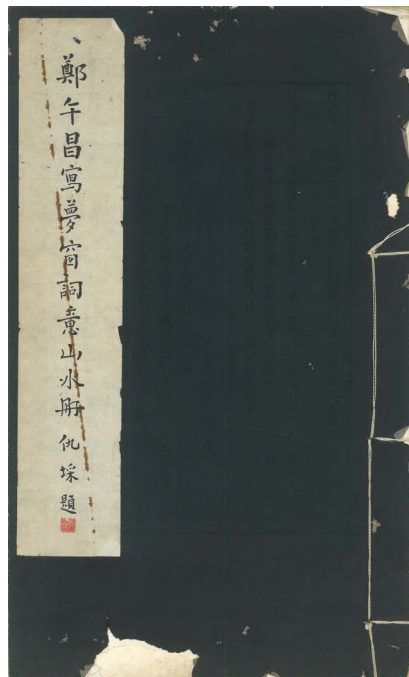 鄭午昌寫夢窗詞意山水册
仇埰題